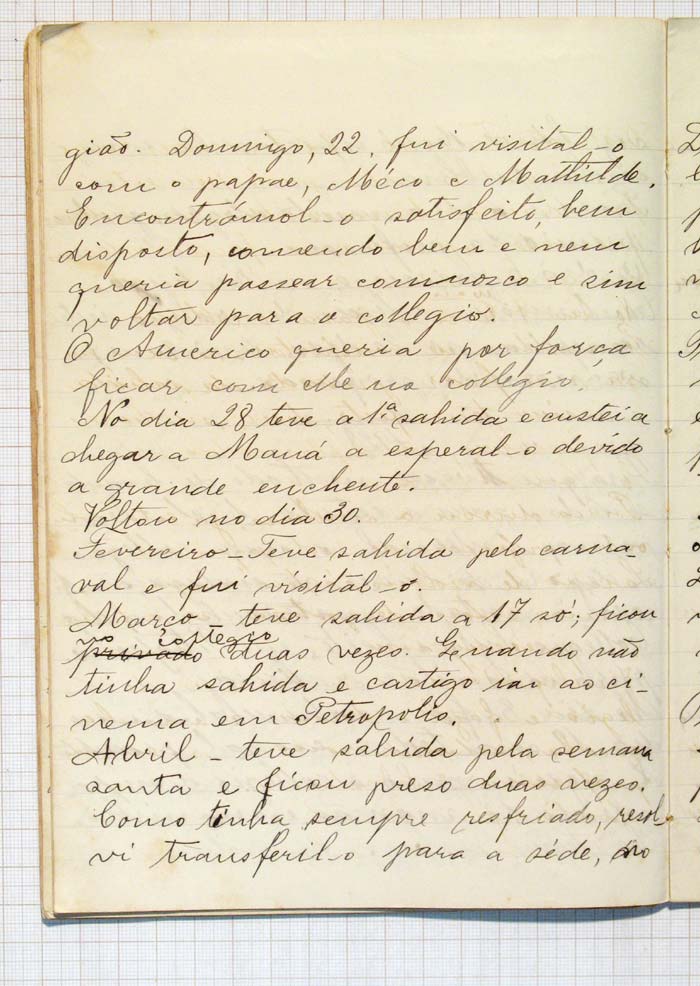 gião. Domingo, 22, fui visital-o
com o papae, Méco e Mathilde.
Encontrámol-o satisfeito, bem
disposto, comendo bem e nem
queria passear comnosco e sim
voltar para o collegio.
O Americo queria por força
ficar com elle no collegio.
No dia 28 teve a 1ª sahida e custei a
chegar a Mauá a esperal-o devido
a grande enchente.
Voltou no dia 30.
Fevereiro - Teve sahida pelo carna-
val e fui visital-o.
Março - teve sahida a 17 só; ficou
no collegio
privado duas vezes. Quando não
tinha sahida e castigo iam ao ci-
nema em Petropolis.
Abril - teve sahida pela semana
santa e ficou preso duas vezes.
Como tinha sempre resfriado, resol-
vi transferil-o para a séde, no